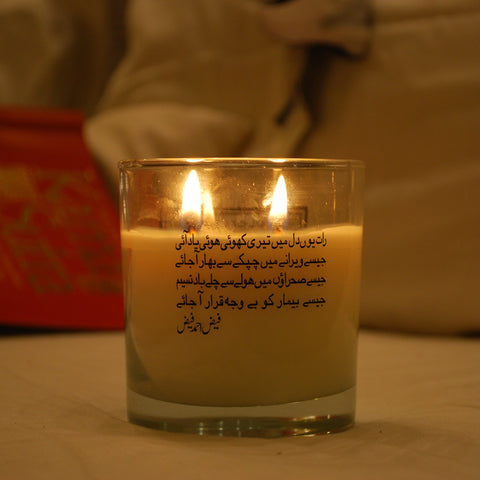 رات یوں دل میں تیری کھوئی ہوئی یاد آئی
جیسے ویرانے میں چپکے سے بہار آ جائے
جیسے صحراؤں میں ہولے سے چلے باد نسیم
جیسے بیمار کو بے وجہ قرار آ جائے
فیض احمد فیض